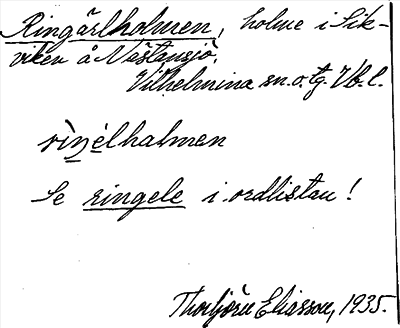 Ringärlholmen, holme i Sik-
viken å Nästansjö,
Vilhelmina sn. o. tg. Vb. l.
rìŋélhalmen
Se ringele i ordlistan!
Thorbjörn Eliasson, 1935.